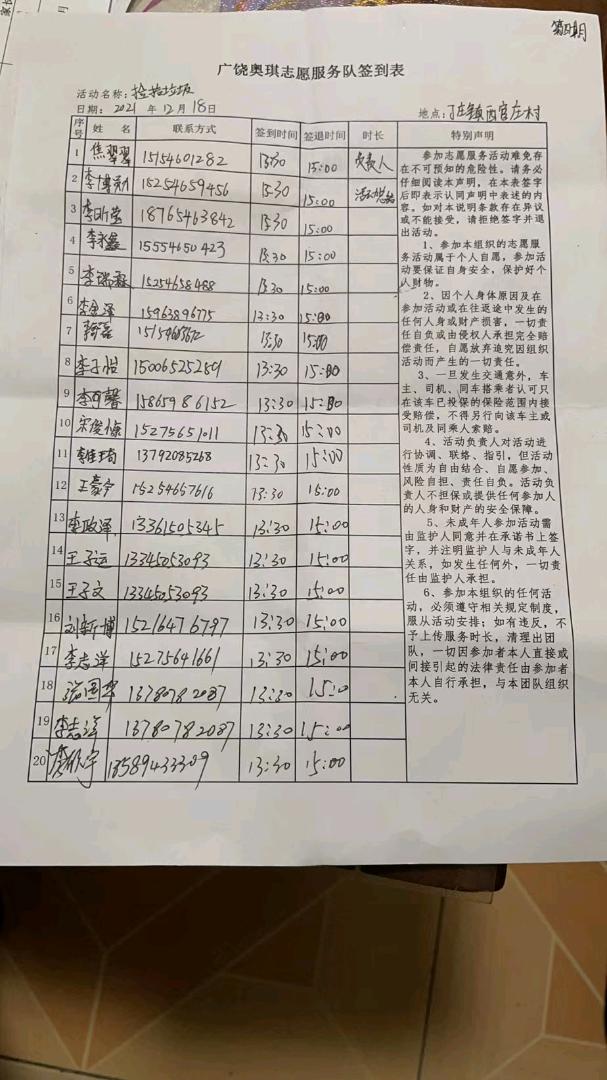 广饶奥琪志愿服务队签到表
活动名称：捡拾垃圾
日期：2021 年 12 月 18 日 地点：丁庄镇西官庄村
序号 姓 名 联系方式 签到时间 签退时间 时长 特别声明
1 焦翠翠 15154601282 13:30 15:00 负责人
2 李博勋 15254659456 13:30 15:00
3 李昕蕊 18765463842 13:30 15:00
4 李永鑫 15554650423 13:30 15:00
5 李瑞霖 15254658488 13:30 15:00
6 李金泽 15963896775 13:30 15:00
7 13:30 15:00
8 李子恺 15006525289 13:30 15:00
9 李可馨 15865986152 13:30 15:00
10 宋俊 15275651011 13:30 15:00
11 李佳琦 13792085268 13:30 15:00
12 王豪宇 15254657616 13:30 15:00
13 李政泽 13361505345 13:30 15:00
14 王子运 13345053093 13:30 15:00
15 王子文 13345053093 13:30 15:00
16 刘新博 15216476797 13:30 15:00
17 李志洋 15275641661 13:30 15:00
18 13780782087 13:30 15:00
19 李志 13780782087 13:30 15:00
20 13589433309 13:30 15:00
参加志愿服务活动难免存
在不可预知的危险性。请务必
仔细阅读本声明，在本表签字
后即表示认同声明中表述的内
容。如对本说明条款存在异议
或不能接受，请拒绝签字并退
出活动。
1、参加本组织的志愿服
务活动属于个人自愿，参加活
动要保证自身安全，保护好个
人财物。
2、因个人身体原因及在
参加活动或在往返途中发生的
任何人身或财产损害，一切责
任自负或由侵权人承担完全赔
偿责任，自愿放弃追究因组织
活动而产生的一切责任。
3、一旦发生交通意外，车
主、司机、同车搭乘者认可只
在该车已投保的保险范围内接
受赔偿，不得另行向该车主或
司机及同乘人索赔。
4、活动负责人对活动进
行协调、联络、指引，但活动
性质为自由结合、自愿参加、
风险自担、责任自负。活动负
责人不担保或提供任何参加人
的人身和财产的安全保障。
5、未成年人参加活动需
由监护人同意并在承诺书上签
字，并注明监护人与未成年人
关系，如发生任何外，一切责
任由监护人承担。
6、参加本组织的任何活
动，必须遵守相关规定制度，
服从活动安排；如有违反，不
予上传服务时长，清理出团
队，一切因参加者本人直接或
间接引起的法律责任由参加者
本人自行承担，与本团队组织
无关。